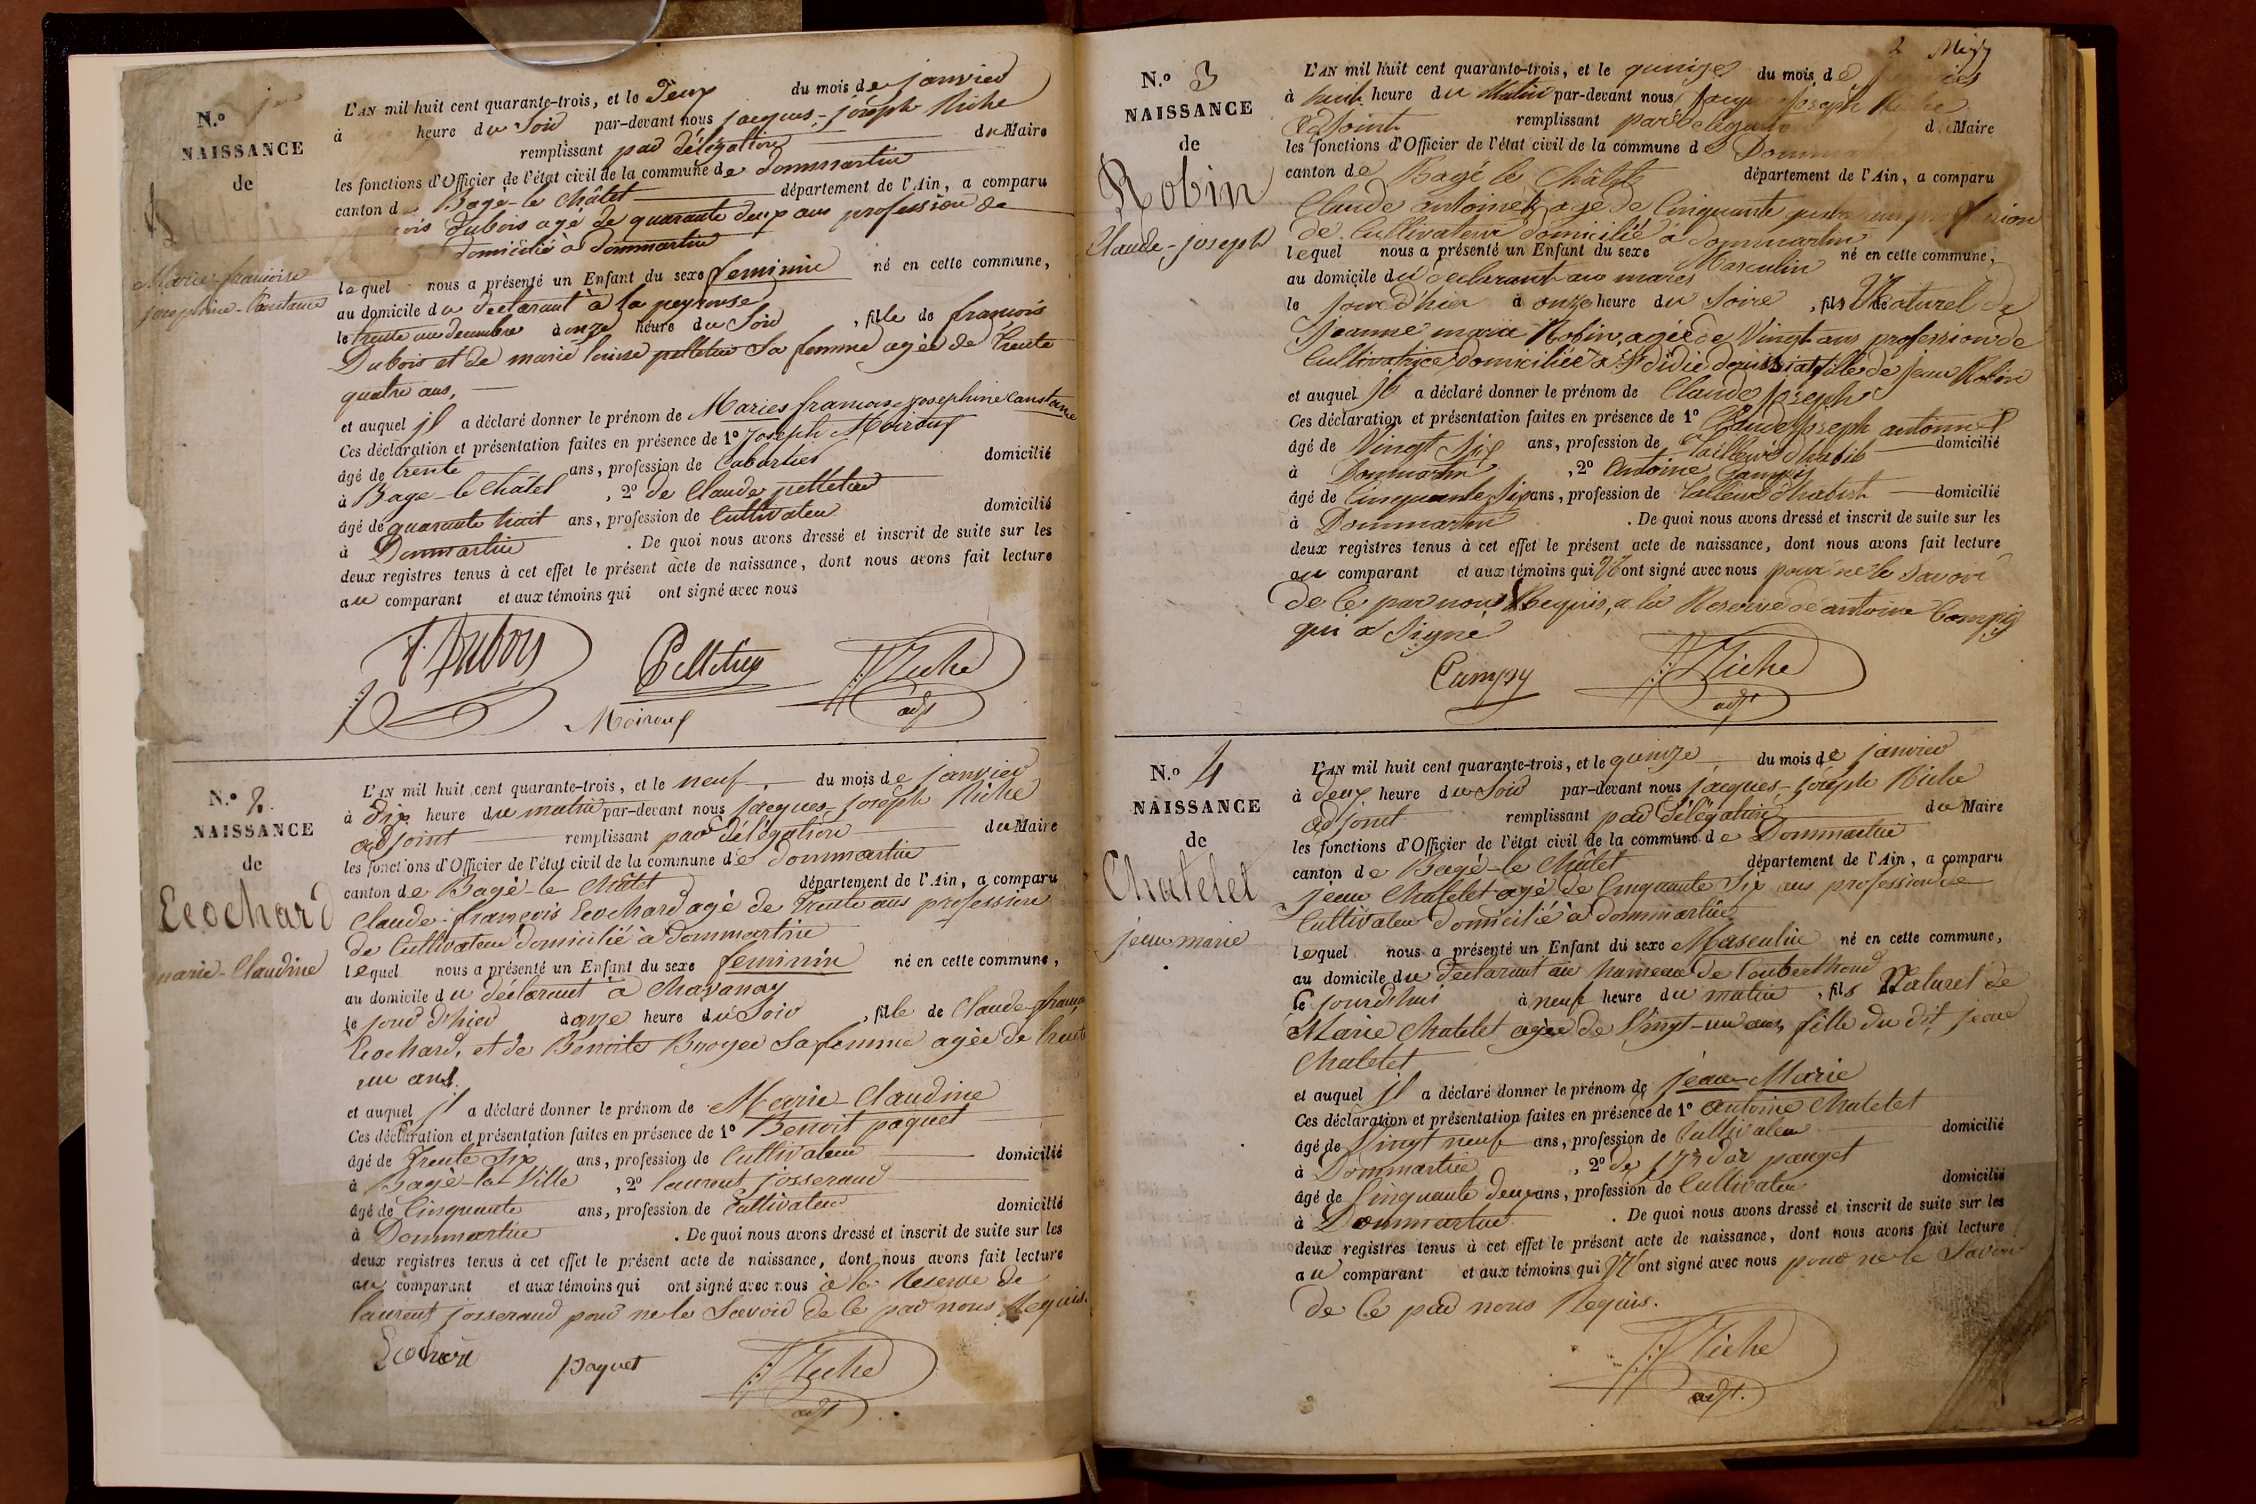 N.o 1er
NAISSANCE
de
Marie-francoise
josephine-Constance
L'AN mil huit cent quarante-trois, et le Deux du mois de janvier
à heure du Soir par-devant nous jacques-joseph Riche
remplissant par délégation du Maire
les fonctions d'Officier de l'état civil de la commune de Dommartin
canton de Bagé-le Châtel département de l'Ain, a comparu
Dubois agé de quarante deux ans profession de
domicilié à Dommartin
lequel nous a présenté un Enfant du sexe feminin né en cette commune,
au domicile du déclarant à la peyrouse
le trente un decembre à onze heure du Soir , fille de francois
Dubois et de marie louise pelletier Sa femme agée de trente
quatre ans,
et auquel il a déclaré donner le prénom de Maries francoise josephine Constance
Ces déclaration et présentation faites en présence de 1o Joseph Moiroux
âgé de trente ans, profession de Cabartier domicilié
à Bage-le Chatel , 2o de Claude pelletier
âgé de quarante huit ans, profession de Cultivateur domicilié
à Dommartin . De quoi nous avons dressé et inscrit de suite sur les
deux registres tenus à cet effet le présent acte de naissance, dont nous avons fait lecture
au comparant et aux témoins qui ont signé avec nous
f. Dubois Pelletier Riche
Moiroux adjt
N.o 2.
NAISSANCE
de
Ecochard
marie-Claudine
L'AN mil huit cent quarante-trois, et le neuf du mois de janvier
à dix heure du matin par-devant nous jacques-joseph Riche
adjoint remplissant par délégation du Maire
les fonctions d'Officier de l'état civil de la commune de Dommartin
canton de Bagé-le Châtel département de l'Ain, a comparu
Claude-françois Ecochard agé de Trente ans profession
de Cultivateur domicilié à dommartin
lequel nous a présenté un Enfant du sexe feminin né en cette commune,
au domicile du déclarant à Chavanay
le jour d'hier à onze heure du Soir , fille de Claude-françois
Ecochard, et de Benoite Broyer Sa femme agée de trente
un ans.
et auquel il a déclaré donner le prénom de Marie-Claudine
Ces déclaration et présentation faites en présence de 1o Benoit paquet
âgé de Trente Six ans, profession de Cultivateur domicilié
à Bagé-la-Ville , 2o laurent josserand
âgé de Cinquante ans, profession de Cultivateur domicilié
à Dommartin . De quoi nous avons dressé et inscrit de suite sur les
deux registres tenus à cet effet le présent acte de naissance, dont nous avons fait lecture
au comparant et aux témoins qui ont signé avec nous à la Reserve de
laurent josserand pour ne le Savoir de Ce par nous Requis.
Ecochard paquet Riche
adjt
2
N.o 3
NAISSANCE
de
Robin
Claude-joseph
L'AN mil huit cent quarante-trois, et le quinze du mois de
à huit heure du Matin par-devant nous Jacques Joseph Riche
Adjoint remplissant par délégation du Maire
les fonctions d'Officier de l'état civil de la commune de
canton de Bagé le Châtel département de l'Ain, a comparu
Claude antoine agé de Cinquante
de Cultivateur domicilié à Dommartin
lequel nous a présenté un Enfant du sexe Masculin né en cette commune,
au domicile du déclarant au mares
le Jour d'hier à onze heure du Soire , fils Naturel de
Jeanne marie Robin, agée de Vingt ans profession de
Cultivatrice domiciliée à St didier fille de jean Robin
et auquel il a déclaré donner le prénom de Claude Joseph
Ces déclaration et présentation faites en présence de 1o Claude Joseph antoine
âgé de Vingt Six ans, profession de Tailleur d'habit domicilié
à Dommartin , 2o Antoine Campy
âgé de Cinquante Six ans, profession de Tailleur d'habit domicilié
à Dommartin . De quoi nous avons dressé et inscrit de suite sur les
deux registres tenus à cet effet le présent acte de naissance, dont nous avons fait lecture
au comparant et aux témoins qui N'ont signé avec nous pour ne le Savoir
de Ce par nous Requis, a la Reserve de antoine Campy
qui a Signé
Campy Riche
adjt
N.o 4
NAISSANCE
de
Chatelet
jean marie
L'AN mil huit cent quarante-trois, et le quinze du mois de janvier
à deux heure du Soir par-devant nous jacques-joseph Riche
adjoint remplissant par délégation du Maire
les fonctions d'Officier de l'état civil de la commune de Dommartin
canton de Bagé-le Châtel département de l'Ain, a comparu
jean Chatelet agé de Cinquante Six ans profession de
Cultivateur domicilié à dommartin
lequel nous a présenté un Enfant du sexe Masculin né en cette commune,
au domicile du déclarant au hameau de
le jourd'hui à neuf heure du matin , fils Naturel de
Marie Chatelet agée de Vingt-un ans, fille du dit jean
Chatelet
et auquel il a déclaré donner le prénom de jean-Marie
Ces déclaration et présentation faites en présence de 1o Antoine Chatelet
âgé de Vingt neuf ans, profession de Cultivateur domicilié
à Dommartin , 2o de pauget
âgé de Cinquante deux ans, profession de Cultivateur domicilié
à Dommartin . De quoi nous avons dressé et inscrit de suite sur les
deux registres tenus à cet effet le présent acte de naissance, dont nous avons fait lecture
au comparant et aux témoins qui N'ont signé avec nous pour ne le Savoir
de Ce par nous Requis.
Riche
adjt.